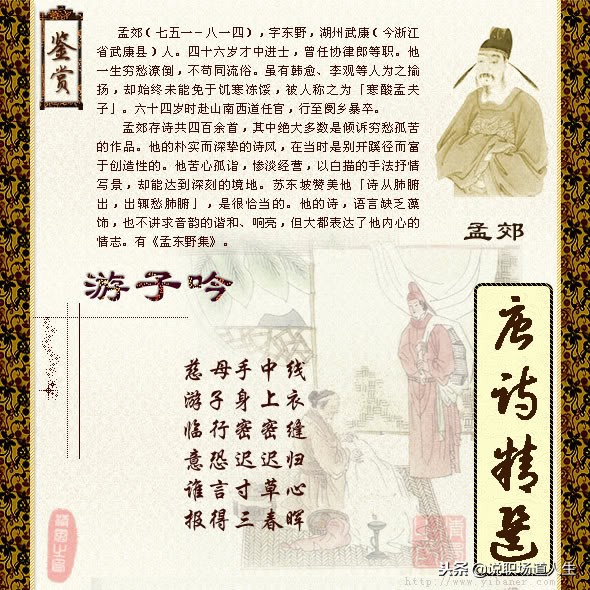 鉴赏
孟郊（七五一－八一四），字东野，湖州武康（今浙江
省武康县）人。四十六岁才中进士，曾任协律郎等职。他
一生穷愁潦倒，不苟同流俗。虽有韩愈、李观等人为之揄
扬，却始终未能免于饥寒冻馁，被人称之为「寒酸孟夫
子」。六十四岁时赴山南西道任官，行至阌乡暴卒。
孟郊存诗共四百余首，其中绝大多数是倾诉穷愁孤苦
的作品。他的朴实而深挚的诗风，在当时是别开蹊径而富
于创造性的。他苦心孤诣，惨淡经营，以白描的手法抒情
写景，却能达到深刻的境地。苏东坡赞美他「诗从肺腑
出，出辄愁肺腑」，是很恰当的。他的诗，语言缺乏藻
饰，也不讲求音韵的谐和、响亮，但大都表达了他内心的
情志。有《孟东野集》。
孟郊
游子吟
慈母手中线
游子身上衣
临行密密缝
意恐迟迟归
谁言寸草心
报得三春晖
唐诗精選
头条 @说职场道人生
http://www.yibaner.com